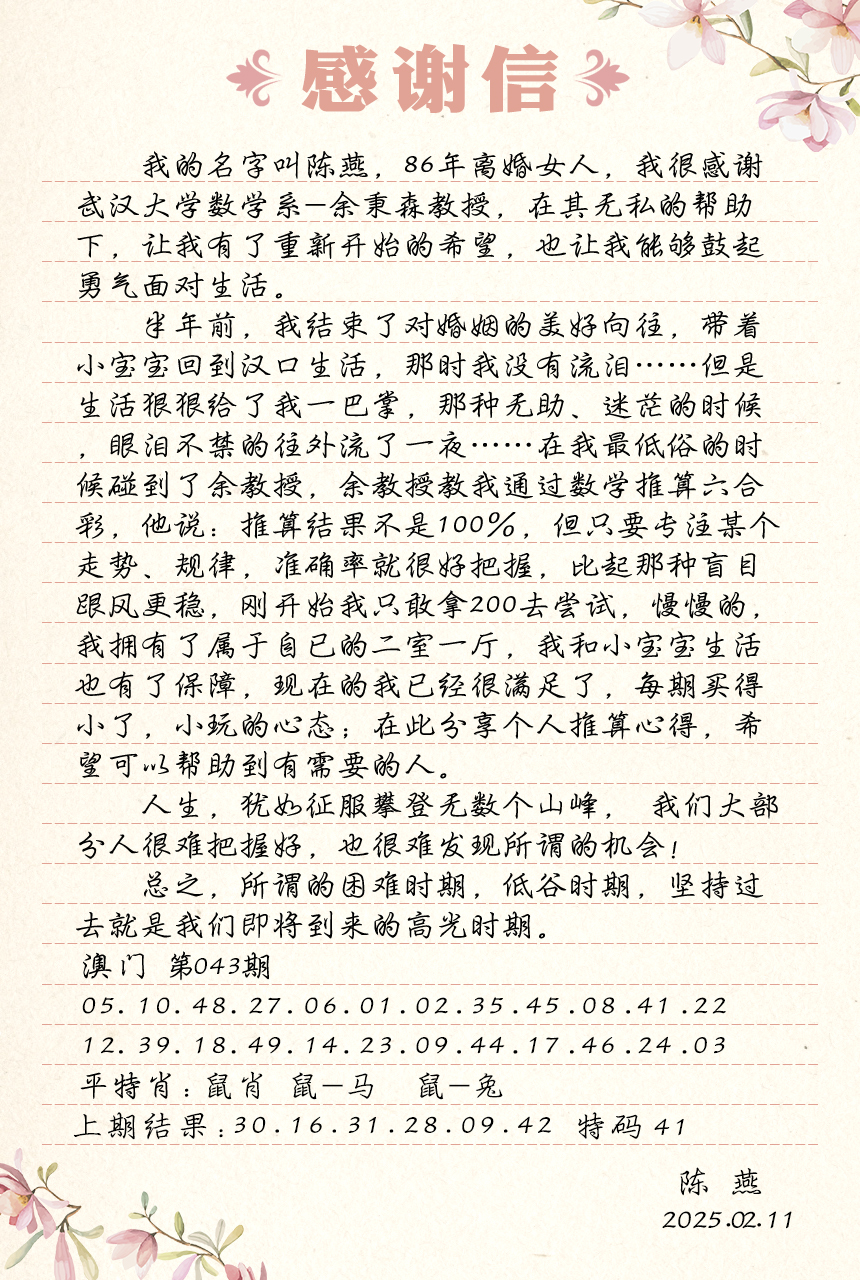 感谢信
我的名字叫陈燕，86年离婚女人，我很感谢
武汉大学数学系—余秉森教授，在其无私的帮助
下，让我有了重新开始的希望，也让我能够鼓起
勇气面对生活。
半年前，我结束了对婚姻的美好向往，带着
小宝宝回到汉口生活，那时我没有流泪……但是
生活狠狠给了我一巴掌，那种无助、迷茫的时候
，眼泪不禁的往外流了一夜……在我最低俗的时
候碰到了余教授，余教授教我通过数学推算六合
彩，他说：推算结果不是100%，但只要专注某个
走势、规律，准确率就很好把握，比起那种盲目
跟风更稳，刚开始我只敢拿200去尝试，慢慢的，
我拥有了属于自已的二室一厅，我和小宝宝生活
也有了保障，现在的我已经很满足了，每期买得
小了，小玩的心态；在此分享个人推算心得，希
望可以帮助到有需要的人。
人生，犹如征服攀登无数个山峰， 我们大部
分人很难把握好，也很难发现所谓的机会！
总之，所谓的困难时期，低谷时期，坚持过
去就是我们即将到来的高光时期。
澳门 第043期
05.10.48.27.06.01.02.35.45.08.41.22
12.39.18.49.14.23.09.44.17.46.24.03
平特肖：鼠肖 鼠—马 鼠—兔
上期结果：30.16.31.28.09.42 特码 41
陈 燕
2025.02.11